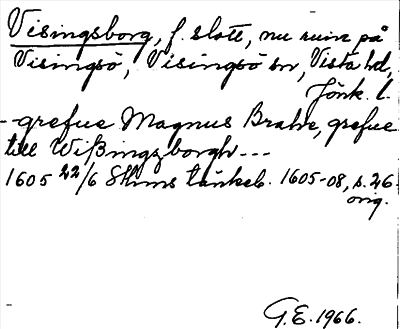 Visingsborg, f. slott, nu ruin på
Visingsö, Visingsö sn, Vista hd,
Jönk. l.
- grefue Magnus Brahe, grefue
till Wißingzborgh ---
1605 22/6 Sthms tänkeb. 1605-08, s. 26.
orig.
G.E. 1966.